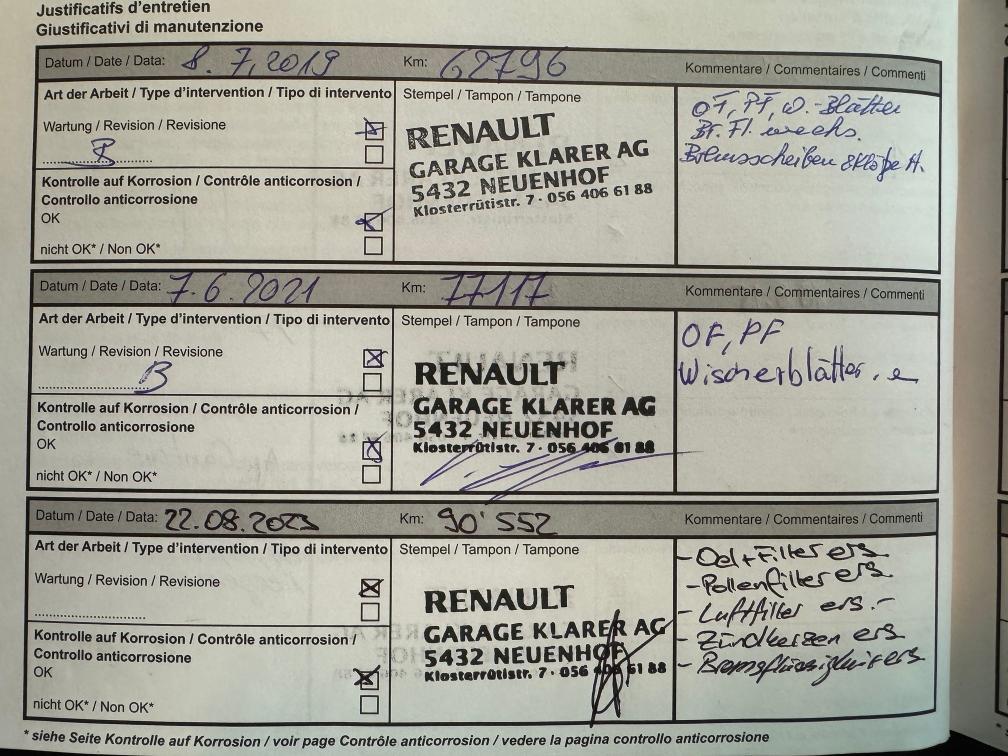 Justificatifs d'entretien
Giustificativi di manutenzione
Datum / Date / Data: 8.7.2019 Km: 62796 Kommentare / Commentaires / Commenti
Art der Arbeit / Type d'intervention / Tipo di intervento
Stempel / Tampon / Tampone
Wartung / Revision / Revisione
B
Kontrolle auf Korrosion / Contrôle anticorrosion /
Controllo anticorrosione
OK
nicht OK* / Non OK*
RENAULT
GARAGE KLARER AG
5432 NEUENHOF
Klosterrütistr. 7 · 056 406 61 88
OF, PF, W.-Blätter
Br. Fl. wechs.
Bremsscheiben & Klötze H.
Datum / Date / Data: 7.6.2021 Km: 77117 Kommentare / Commentaires / Commenti
Art der Arbeit / Type d'intervention / Tipo di intervento
Stempel / Tampon / Tampone
Wartung / Revision / Revisione
B
Kontrolle auf Korrosion / Contrôle anticorrosion /
Controllo anticorrosione
OK
nicht OK* / Non OK*
RENAULT
GARAGE KLARER AG
5432 NEUENHOF
Klosterrütistr. 7 · 056 406 61 88
OF, PF
Wischerblätter
Datum / Date / Data: 22.08.2023 Km: 90'552 Kommentare / Commentaires / Commenti
Art der Arbeit / Type d'intervention / Tipo di intervento
Stempel / Tampon / Tampone
Wartung / Revision / Revisione
Kontrolle auf Korrosion / Contrôle anticorrosion /
Controllo anticorrosione
OK
nicht OK* / Non OK*
RENAULT
GARAGE KLARER AG
5432 NEUENHOF
Klosterrütistr. 7 · 056 406 61 88
- Oel+Filter ers
- Pollenfilter ers
- Luftfilter ers.-
- Zündkerzen ers
- Bremsflüssigkeit ers
* siehe Seite Kontrolle auf Korrosion / voir page Contrôle anticorrosion / vedere la pagina controllo anticorrosione